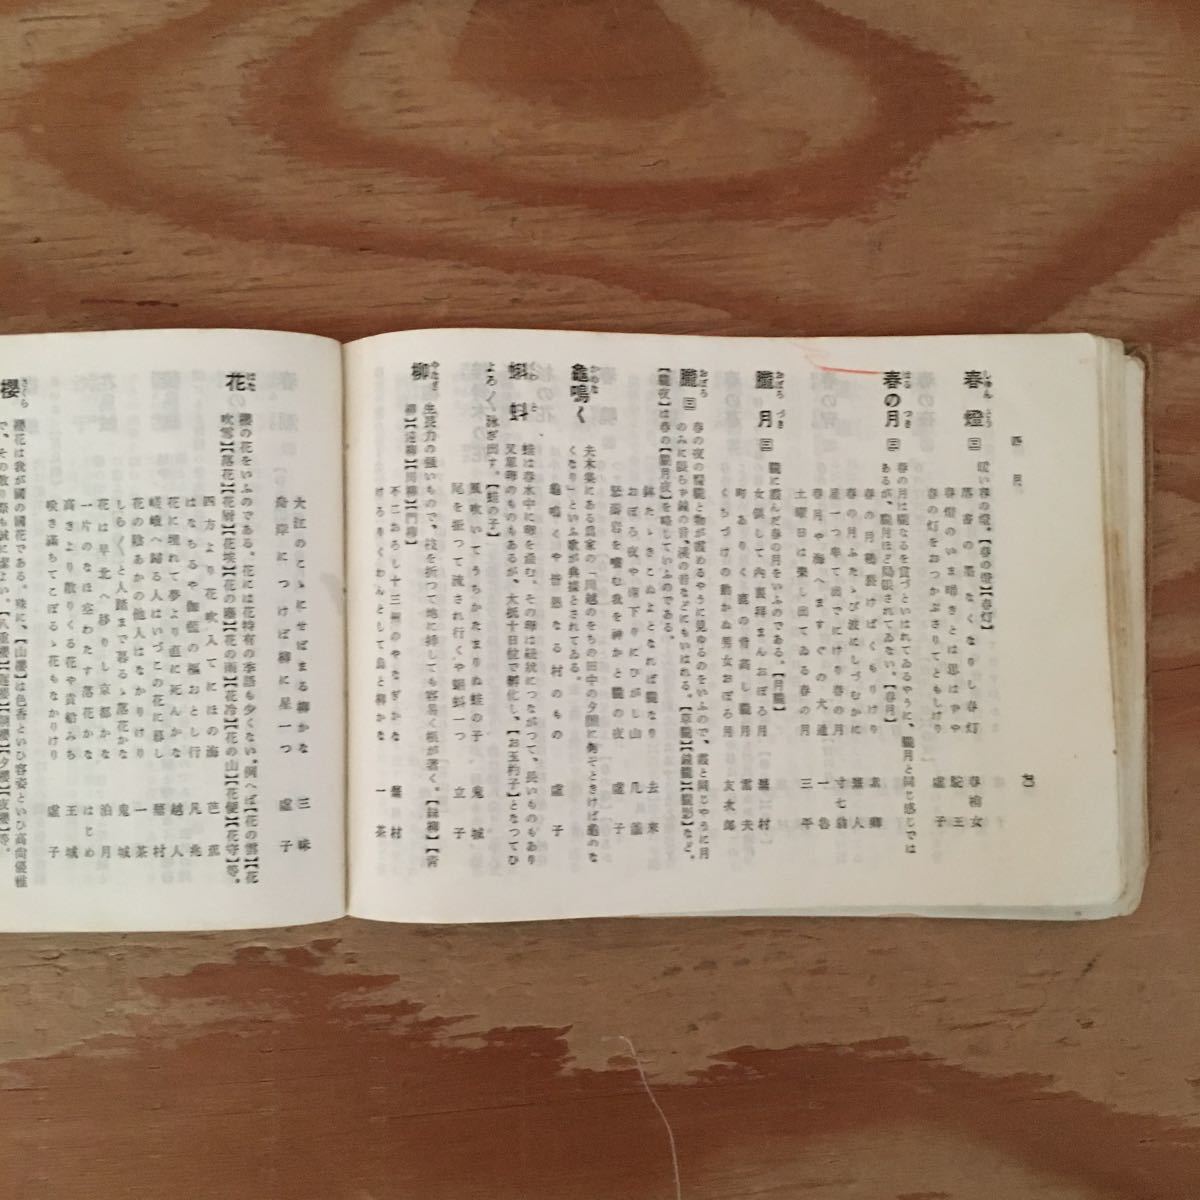 四月
春燈 三 暖い春の燈。【春の燈】【春灯】
落書の墨なくなりし春灯 春梢女
春燈のいま暗きとは思はずや 駝王
春の灯をおつかぶさりてともしけり 虚子
春の月 三 春の月は朧なるを賞づといはれてゐるやうに、朧月と同じ感じでは
あるが、朧月ほど局限されてゐない。【春月】
春の月鶴裂けばくもりけり
春の月ふたゝび波にしづむかに
星一つ牽て出でにけり春の月 寸七翁
春月や海へますぐの大道 一魯
土曜日は楽し出てゐる春の月 三平
朧月 三 朧に霞んだ春の月をいふのである。【月朧】
女倶して内裏拝まんおぼろ月 蕪村
町ありく鹿の背高し朧月 雷夫
くちづけの動かぬ男女おぼろ月 友次郎
朧 三 春の夜の朦朧と物が霞めるやうに見ゆるのをいふので、霞と同じやうに月
のみに限らず鐘の音、瀬の音などにもいはれる。【草朧】【鐘朧】【朧影】など。
【朧夜】は春の【朧月夜】を略していふのである。
鉢たゝきこぬよとなれば朧なり 去来
おぼろ夜や南下りにひがし山 几董
怒濤岩を噛む我を神かと朧の夜 虚子
龜鳴く 夫木集にある為家の「川越のをちの田中の夕闇に何ぞときけば龜のな
くなり」といふ歌が典據とされてゐる。
龜鳴くや皆愚なる村のもの 虚子
蝌蚪 蛙は春水中に卵を産む。その卵は紐状につながつて、長いものもあり
又蟇卵のものもあるが、大抵十日位で孵化し、【お玉杓子】となつてひ
よろ〳〵泳ぎ出す。【蛙の子】
風吹いてうちかたまりぬ蛙の子 鬼城
尾を振つて流され行くや蝌蚪一つ 立子
柳 生長力の強いもので、枝を折つて地に挿しても容易く根が著く。【絲柳】【青
柳】【遠柳】【川柳】【門柳】
不二おろし十三州のやなぎかな 蕪村
けろりくわんとして烏と柳かな 一茶
大江のこゝにせばまる柳かな 三昧
舟岸につけば柳に星一つ 虚子
花 櫻の花をいふのである。花には花特有の季語も少くない。例へば【花の雲】【花
吹雪】【落花】【花屑】【花埃】【花の塵】【花の雨】【花冷】【花の山】【花便】【花守】等。
四方より花吹入てにほの海 芭蕉
はなちるや伽藍の樞おとし行 凡兆
花に埋れて夢より直に死んかな 越人
嵯峨へ帰る人はいづこの花に暮し 蕪村
花の陰あかの他人はなかりけり 一茶
しら〳〵と人踏まで暮るゝ落花かな 鬼城
花は早北へ移りし京都かな 泊月
一片のなほ空わたす落花かな はじめ
高きより散りくる花や貴船みち 王城
咲き満ちてこぼるゝ花もなかりけり 虚子
櫻 櫻花は我が國の國花である。殊に、【山櫻】は色香といひ容姿といひ高尚優雅